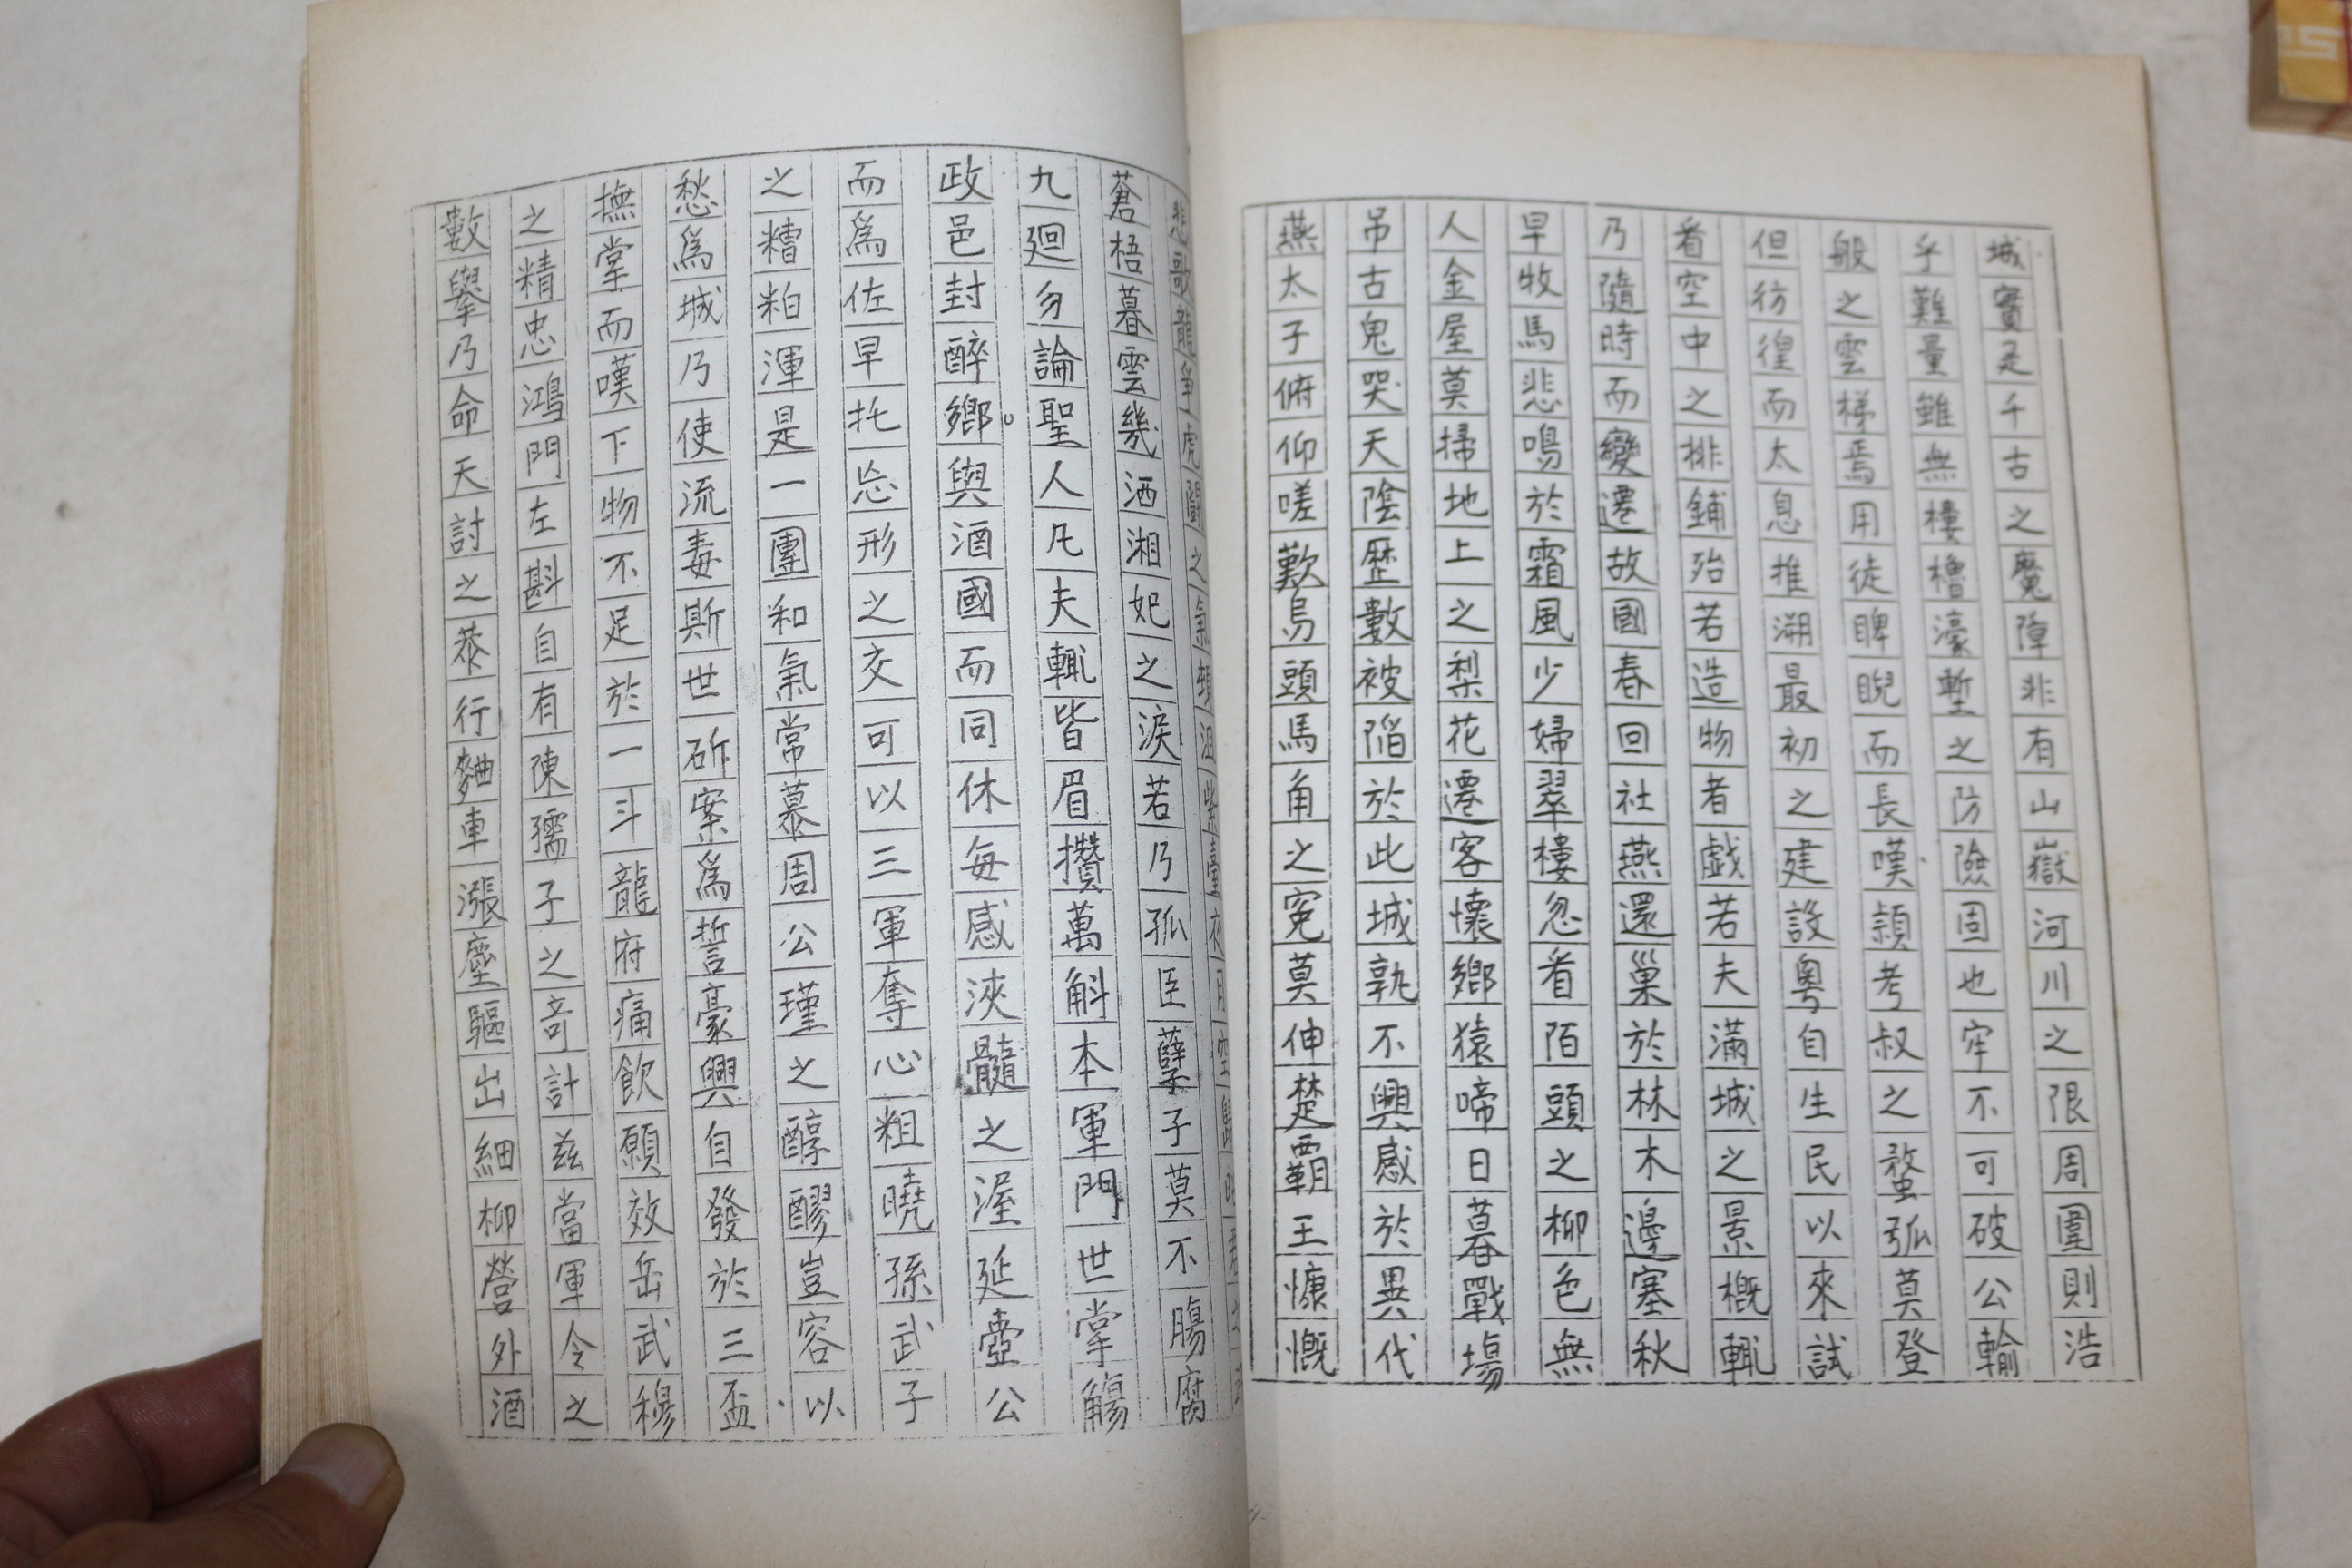 城實是千古之魔障非有山嶽河川之限周圍則浩
乎難量雖無樓櫓濠塹之防險固也牢不可破公輸
般之雲梯焉用徒睥睨而長嘆頴考叔之蝥弧莫登
但彷徨而太息推溯最初之建設粤自生民以來試
看空中之排鋪殆若造物者戯若夫滿城之景槪輒
乃隨時而變遷故國春回社燕還巢於林木邊塞秋
早牧馬悲鳴於霜風少婦翠樓忽看陌頭之柳色無
人金屋莫掃地上之梨花遷客懷鄉猿啼日暮戰場
吊古鬼哭天陰歷數被陷於此城孰不興感於異代
燕太子俯仰嗟歎烏頭馬角之寃莫伸楚覇王慷慨
悲歌龍爭虎鬪之氣
蒼梧暮雲幾洒湘妃之淚若乃孤臣孽子莫不腸腐
九廻勿論聖人凡夫輒皆眉攢萬斛本軍門世掌觴
政邑封醉鄉與酒國而同休每感浹髓之渥延壺公
而爲佐早托忘形之交可以三軍奪心粗曉孫武子
之糟粕渾是一團和氣常慕周公瑾之醇醪豈容以
愁爲城乃使流毒斯世斫案爲誓豪興自發於三盃
撫掌而嘆下物不足於一斗龍府痛飮願效岳武穆
之精忠鴻門左斟自有陳孺子之奇計玆當軍令之
數擧乃命天討之恭行麯車漲塵驅出細柳營外酒